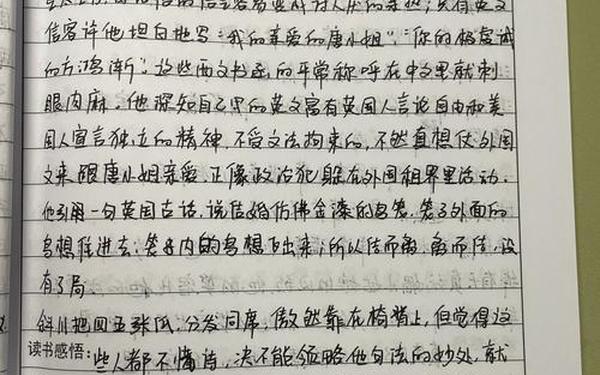 信容许他坦白地写"我的亲爱的唐小姐"、"你的极虔诚
的方鸿渐"。这些西文书函的平常称呼在中文里就刺
眼肉麻。他深知自己里的英文富有英国人言论自由和美
国人宣言独立的精神,不受文法拘束的,不然真想仗外国
文来跟唐小姐亲爱,正像政治犯躲在外国租界里活动。
他引用一句英国古话,说结婚仿佛金漆的鸟笼,笼子外面的
鸟想住进去,笼子内的鸟想飞出来;所以结而离,离而结,没
有了局
斜川把四五张纸,分发同席,傲然靠在椅背上,但觉得这
读书感悟:些人都不懂诗,决不能领略他句法的妙处,就